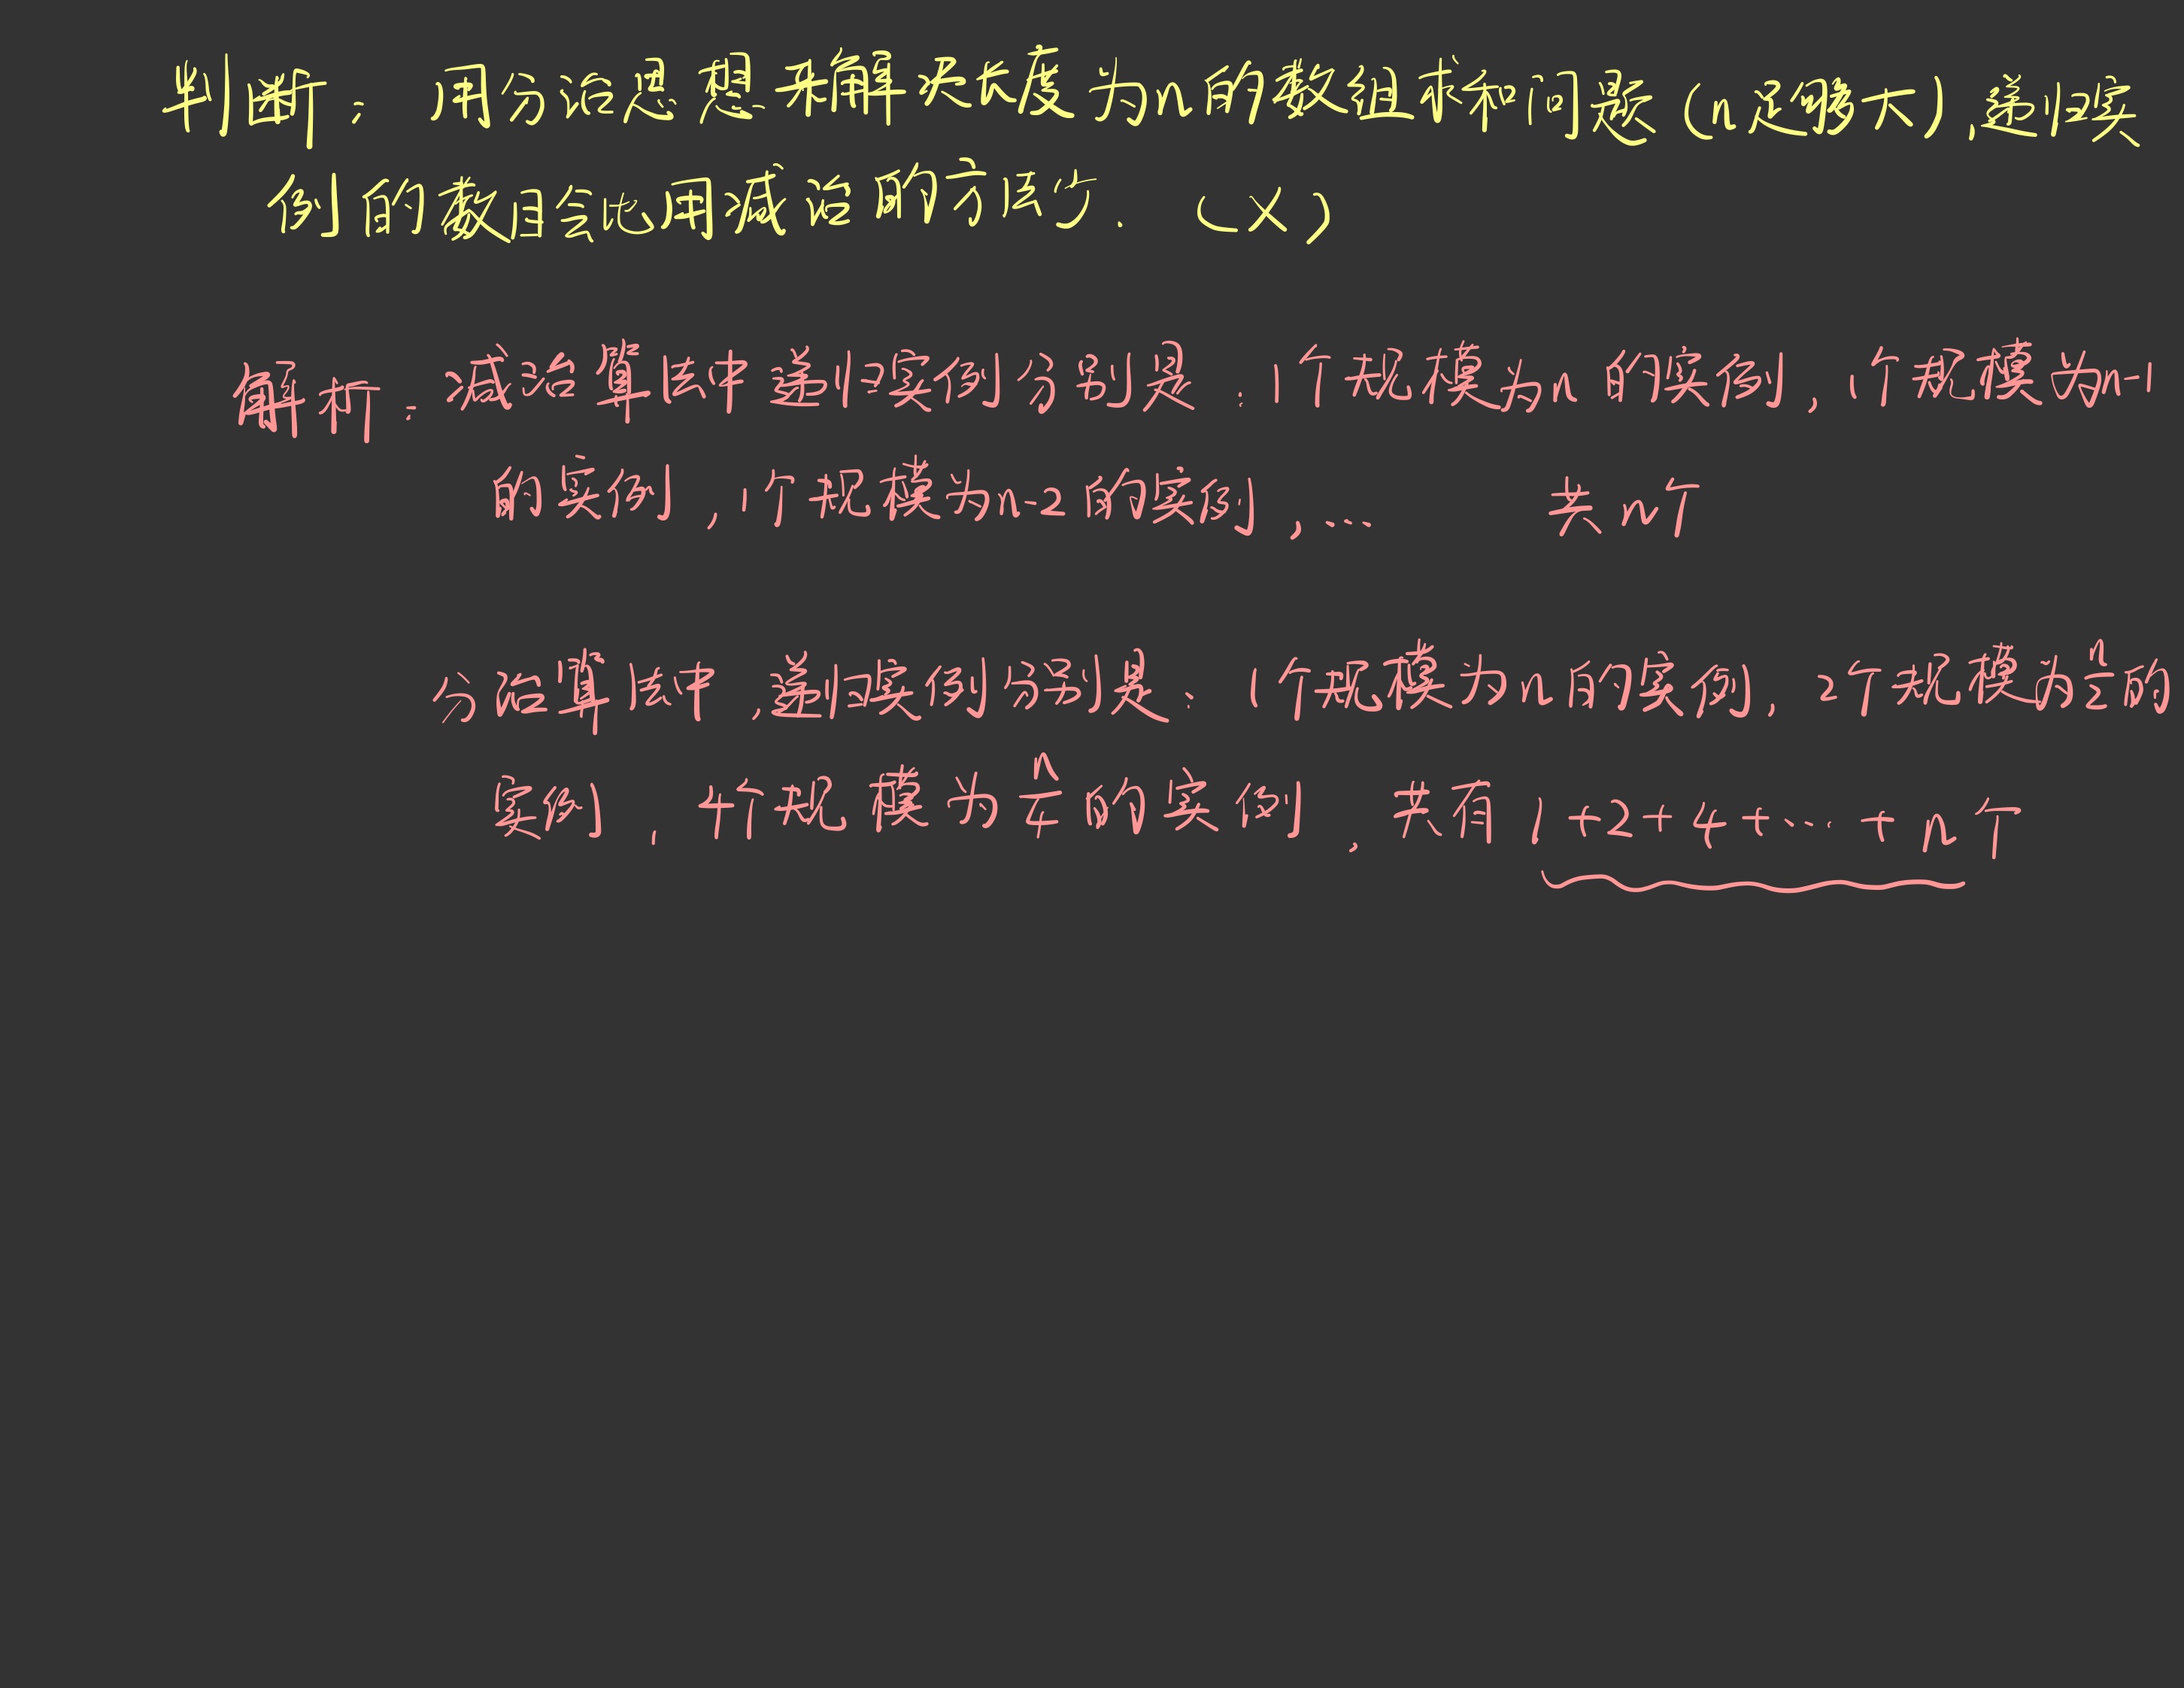 判断：用分治思想来解决长度为n的数组求和问题（n足够大），递归实
例的数目会比用减治的方法少.（×）
解析：减治算法中递归实例分别是：1个规模为n的实例，1个规模为n-1
的实例，1个规模为n-2的实例，... 共n个
分治算法中，递归实例分别是：1个规模为n的实例，2个规模为n/2的
实例，4个规模为n/4的实例，共有1+2+4+...+n个